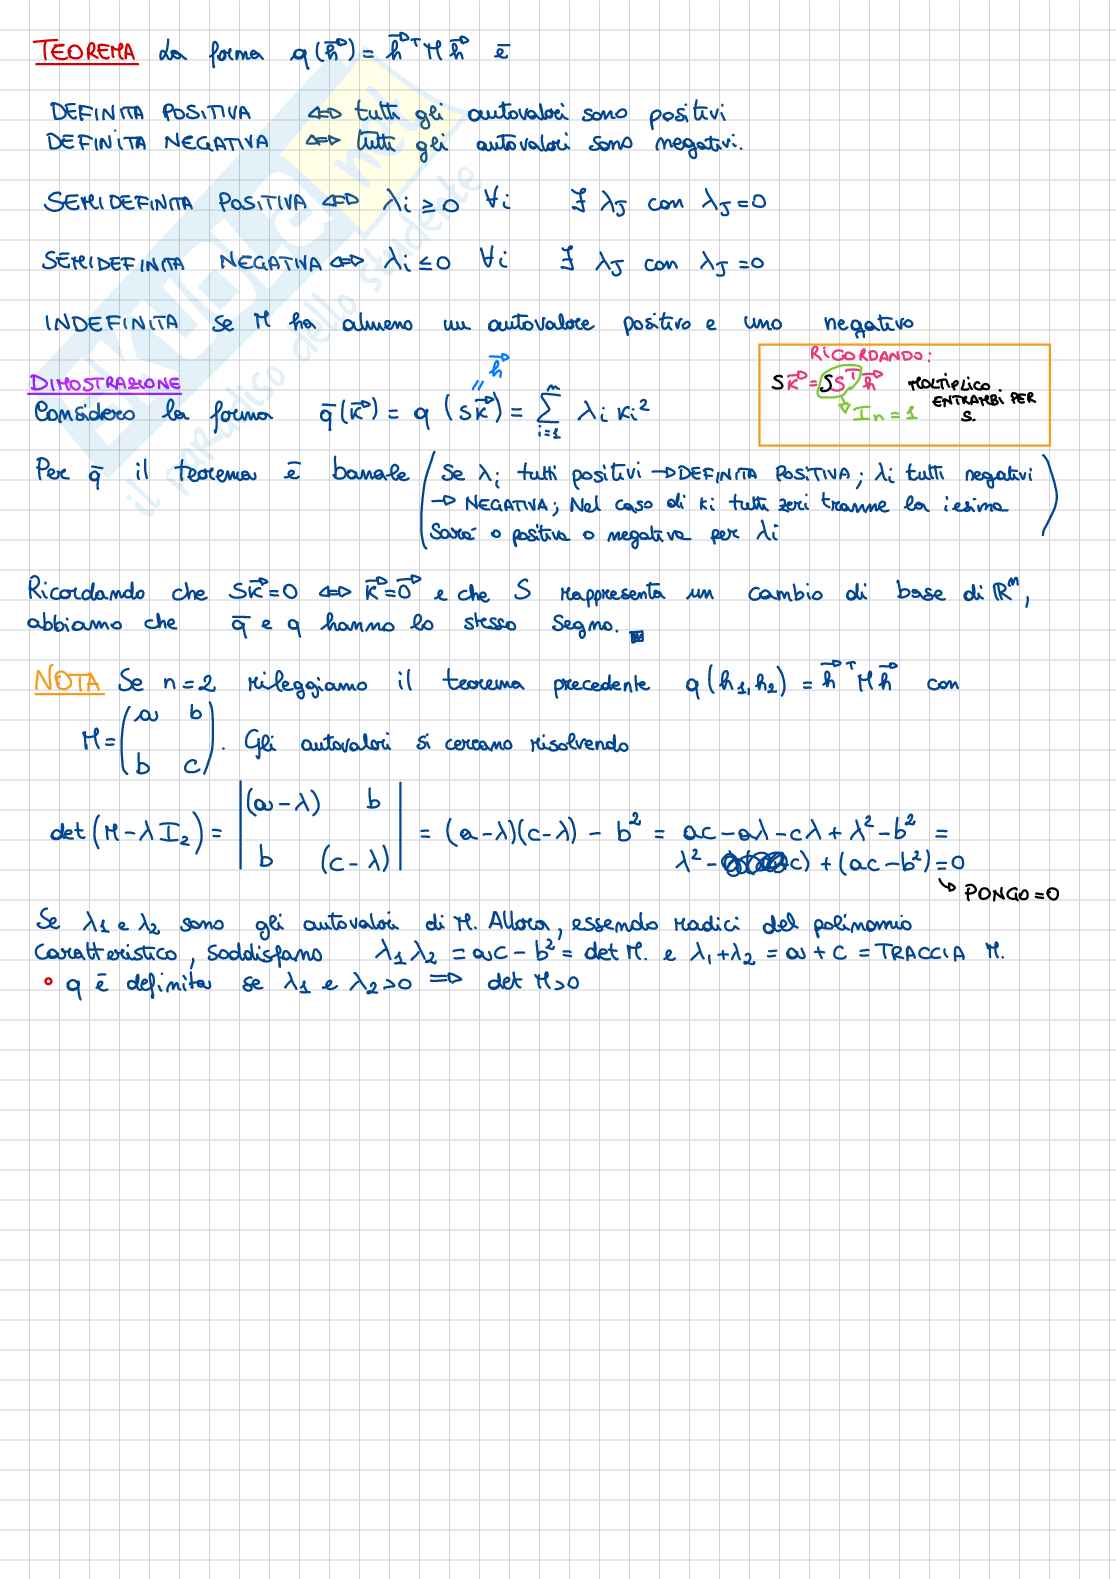 TEOREMA La forma q(h⃗) = h⃗ᵀMh⃗ è
DEFINITA POSITIVA ⇔ tutti gli autovalori sono positivi
DEFINITA NEGATIVA ⇔ tutti gli autovalori sono negativi.
SEMIDEFINITA POSITIVA ⇔ λi ≥ 0 ∀i ∃ λJ con λJ = 0
SEMIDEFINITA NEGATIVA ⇔ λi ≤ 0 ∀i ∃ λJ con λJ = 0
INDEFINITA se M ha almeno un autovalore positivo e uno negativo
RICORDANDO:
SK⃗ = SSᵀh⃗ MOLTIPLICO ENTRAMBI PER S.
In = 1
DIMOSTRAZIONE
h⃗
=
Considero la forma q̄(K⃗) = q(SK⃗) = ∑ᵢ₌₁ⁿ λi Ki²
Per q̄ il teorema è banale (Se λi tutti positivi → DEFINITA POSITIVA; λi tutti negativi
→ NEGATIVA; Nel caso di Ki tutti zeri tranne la iesima
Sarà o positiva o negativa per λi)
Ricordando che SK⃗ = 0 ⇔ K⃗ = 0⃗ e che S rappresenta un cambio di base di ℝⁿ,
abbiamo che q̄ e q hanno lo stesso segno.
NOTA Se n = 2 rileggiamo il teorema precedente q(h₁,h₂) = h⃗ᵀMh⃗ con
M = (a b
b c). Gli autovalori si cercano risolvendo
det(M - λI₂) = |(a-λ) b
b (c-λ)| = (a-λ)(c-λ) - b² = ac - aλ - cλ + λ² - b² =
λ² - c) + (ac - b²) = 0
↳ PONGO = 0
Se λ₁ e λ₂ sono gli autovalori di M. Allora, essendo radici del polinomio
caratteristico, soddisfano λ₁λ₂ = ac - b² = det M. e λ₁+λ₂ = a + c = TRACCIA M.
• q è definita se λ₁ e λ₂ > 0 ⇒ det M > 0
SKUOLA
il paradiso dello studente